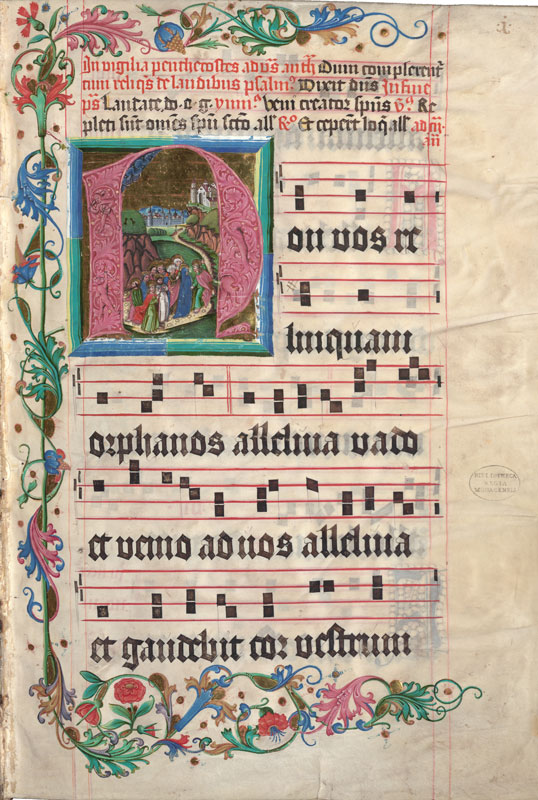 I
In vigilia penthecostes ad vs̄ anth̄ Dum complerent'
cum reliqs de laudibus psalm⁹ Dixit dn̄s In fine
ps̄ Laudate. do. o. g. ymn⁹ Veni creator spūs V⁹ Re
pleti sūt om̄es spū sct̄o all R⁹ Et ceperūt loq̄ all
Non vos re
linquam
orphanos alleluia vado
et venio ad vos alleluia
et gaudebit cor vestrum
BIBLIOTHECA
REGIA
MONACENSIS